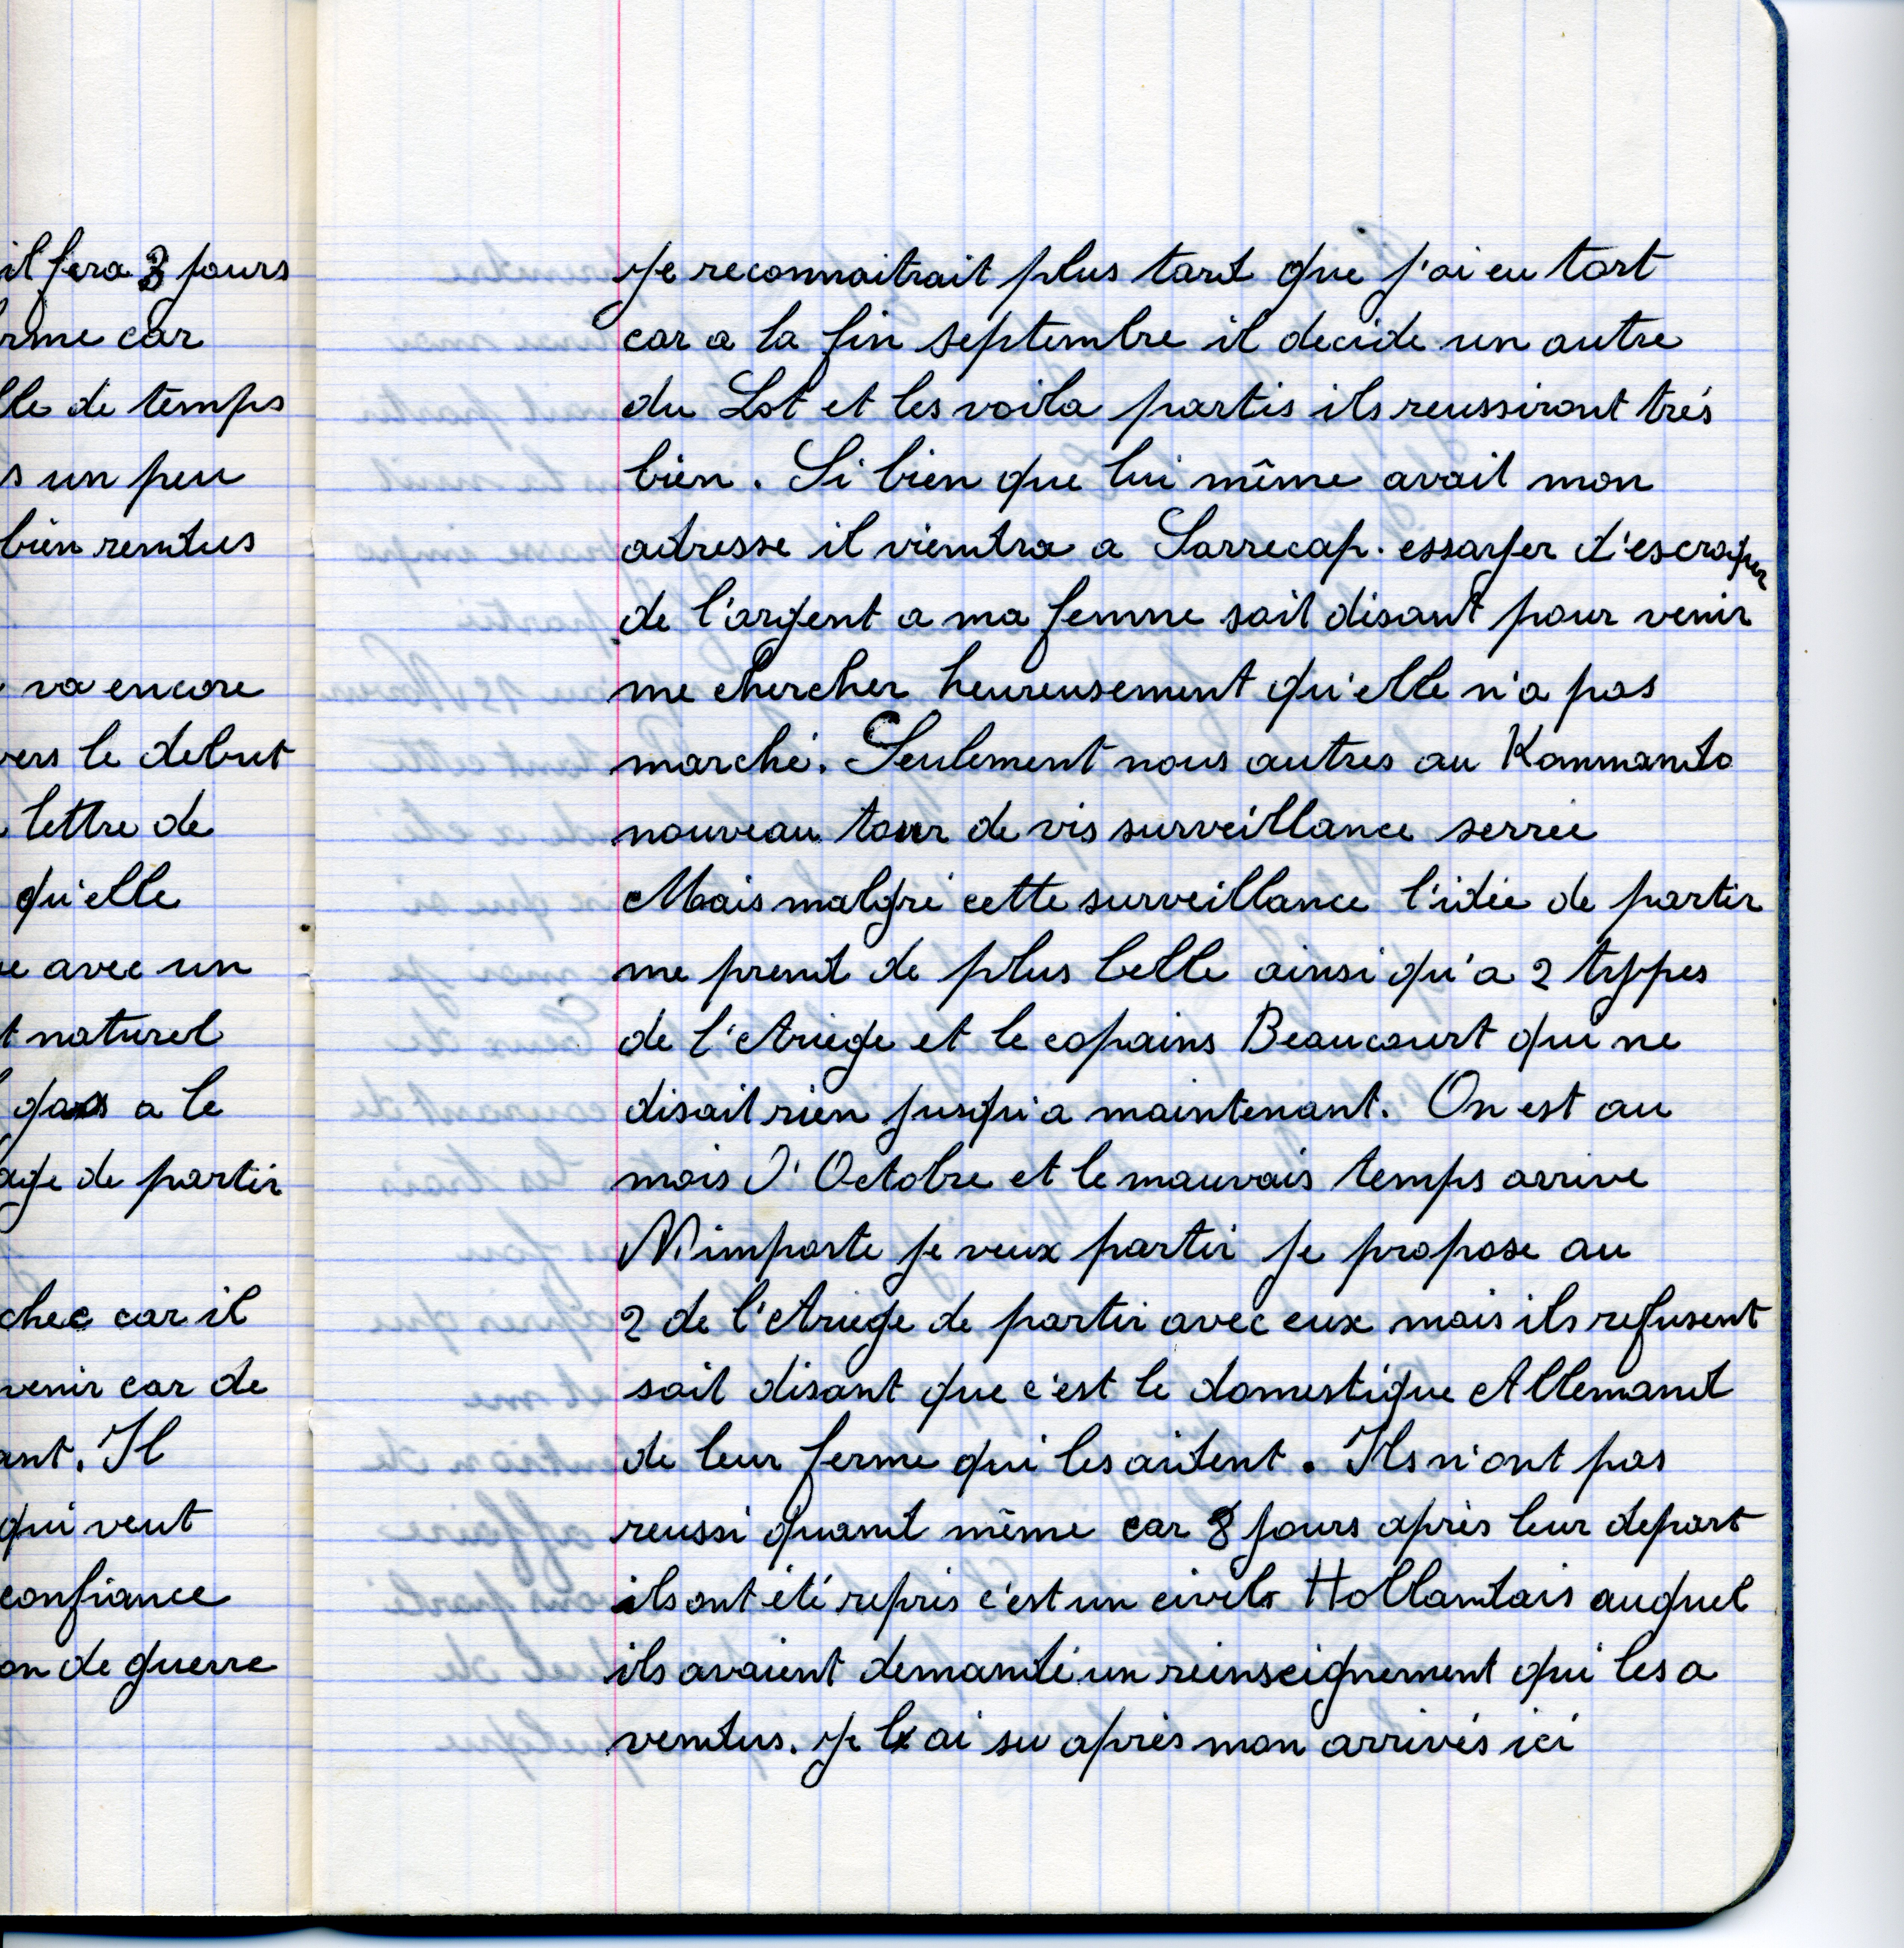 il fera 3 jours
rme car
lle de temps
s un peu
bien rendus
va encore
vers le debut
lettre de
qu'elle
e avec un
t naturel
gars a le
age de partir
chec car il
venir car de
ant. Il
qui veut
confiance
on de guerre
Je reconnaitrait plus tard que j'ai eu tort
car a la fin septembre il decide un autre
du Lot et les voila partis ils reussiront trés
bien. Si bien que lui même avait mon
adresse il viendra a Sarrecap. essayer d'escroquer
de l'argent a ma femme soit disant pour venir
me chercher heureusement qu'elle n'a pas
marché. Seulement nous autres au Kommando
nouveau tour de vis surveillance serrée
Mais malgré cette surveillance l'idée de partir
me prend de plus belle ainsi qu'a 2 types
de l'Ariege et le copains Beaucourt qui ne
disait rien jusqu'a maintenant. On est au
mois d'Octobre et le mauvais temps arrive
N'importe je veux partir je propose au
2 de l'Ariege de partir avec eux mais ils refusent
soit disant que c'est le domestique Allemand
de leur ferme qui les aident. Ils n'ont pas
reussi quand même car 8 jours après leur depart
ils ont été repris c'est un civil Hollandais auquel
ils avaient demandé un reinseignement qui les a
vendus. Je l'ai su après mon arrivés ici